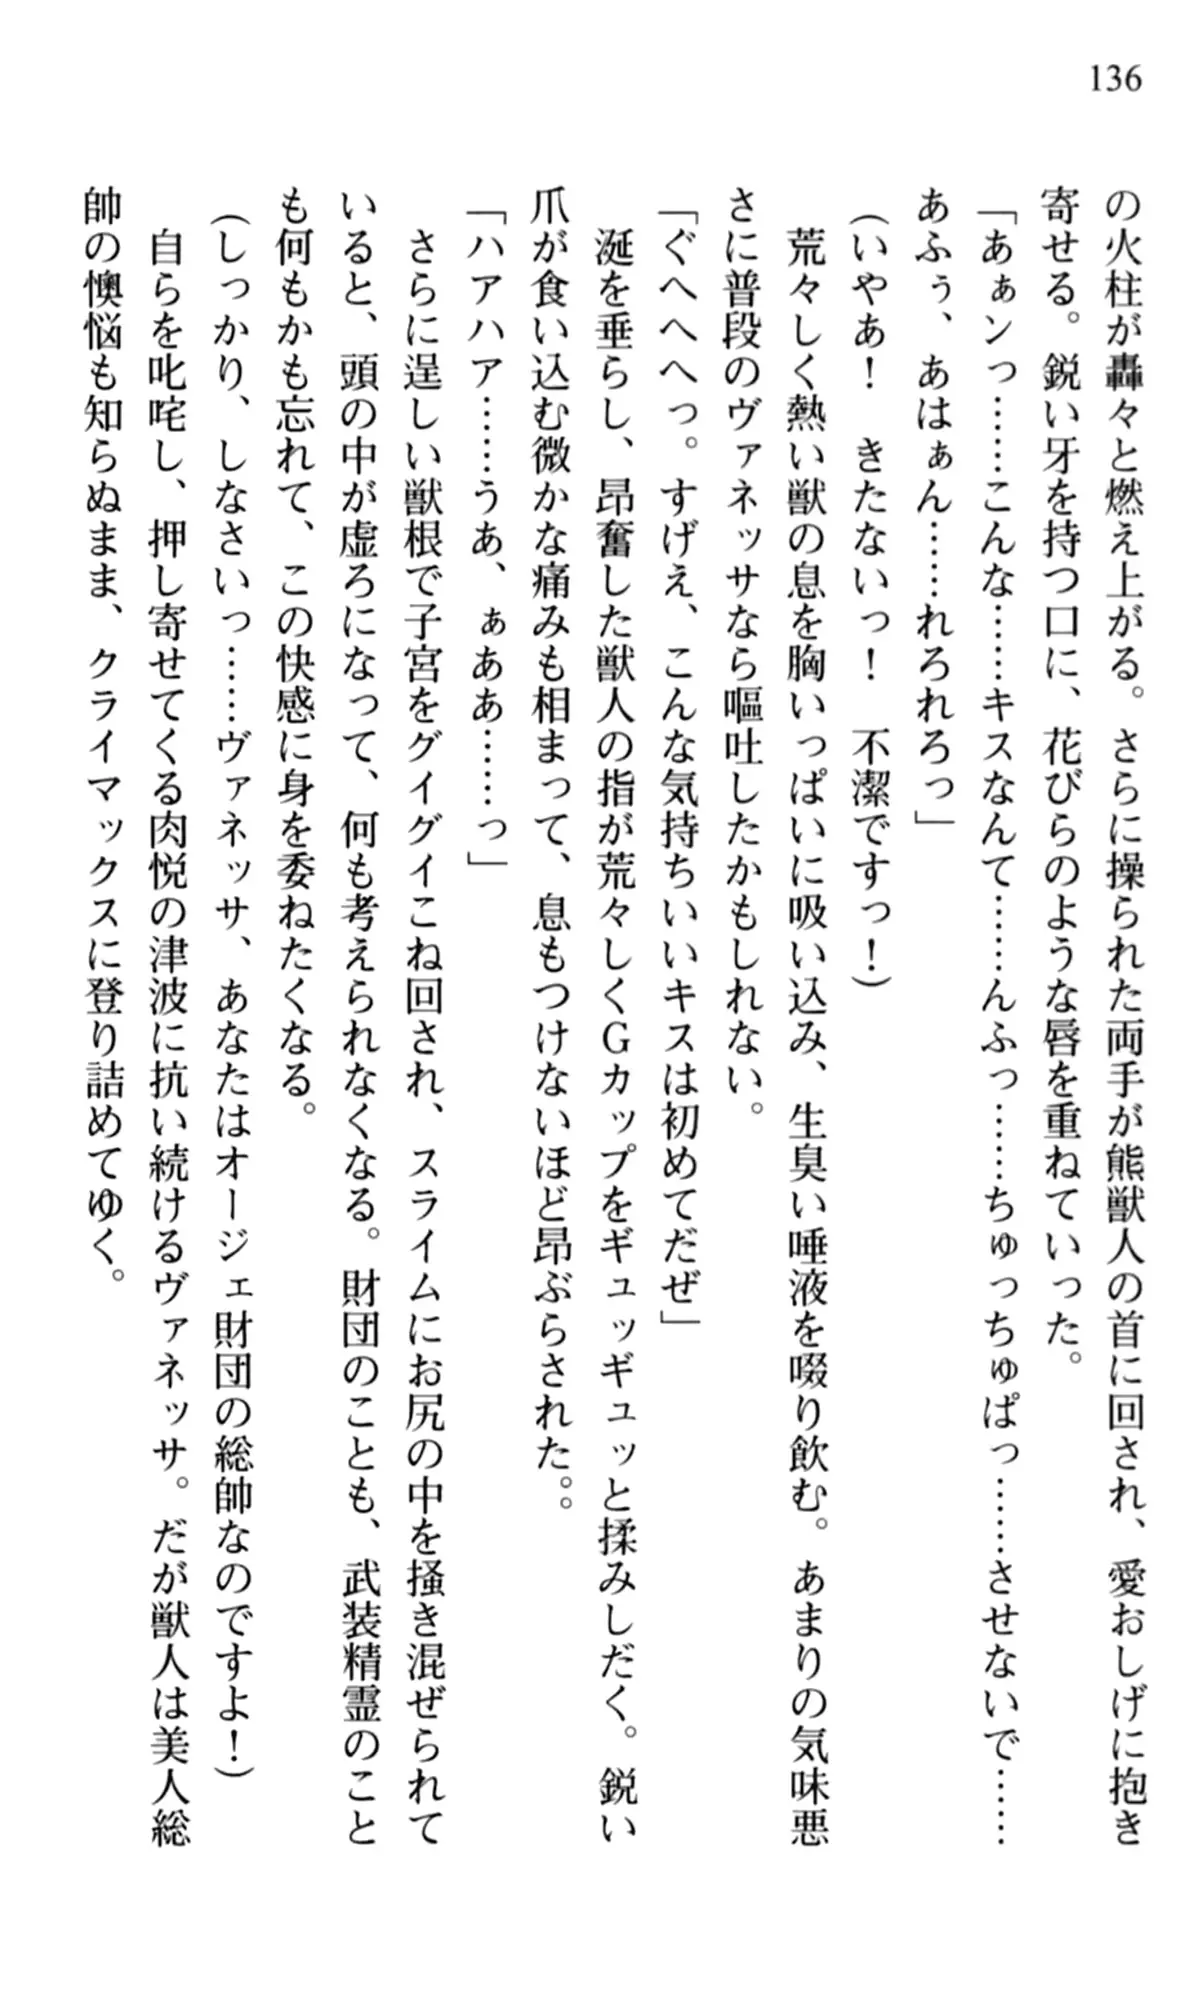 136
の火柱が轟々と燃え上がる。さらに操られた両手が熊獣人の首に回され、愛おしげに抱き
寄せる。鋭い牙を持つ口に、花びらのような唇を重ねていった。
「あぁンっ……こんな……キスなんて……んふっ……ちゅっちゅぱっ……させないで……
あふぅ、あはぁん……れろれろっ」
(いやあ！　きたないっ！　不潔ですっ！)
　荒々しく熱い獣の息を胸いっぱいに吸い込み、生臭い唾液を啜り飲む。あまりの気味悪
さに普段のヴァネッサなら嘔吐したかもしれない。
「ぐへへへっ。すげえ、こんな気持ちいいキスは初めてだぜ」
　涎を垂らし、昂奮した獣人の指が荒々しくGカップをギュッギュッと揉みしだく。鋭い
爪が食い込む微かな痛みも相まって、息もつけないほど昂ぶらされた。。
「ハアハア……うあ、ぁああ……っ」
　さらに逞しい獣根で子宮をグイグイこね回され、スライムにお尻の中を掻き混ぜられて
いると、頭の中が虚ろになって、何も考えられなくなる。財団のことも、武装精霊のこと
も何もかも忘れて、この快感に身を委ねたくなる。
(しっかり、しなさいっ……ヴァネッサ、あなたはオージェ財団の総帥なのですよ！)
　自らを叱咤し、押し寄せてくる肉悦の津波に抗い続けるヴァネッサ。だが獣人は美人総
帥の懊悩も知らぬまま、クライマックスに登り詰めてゆく。